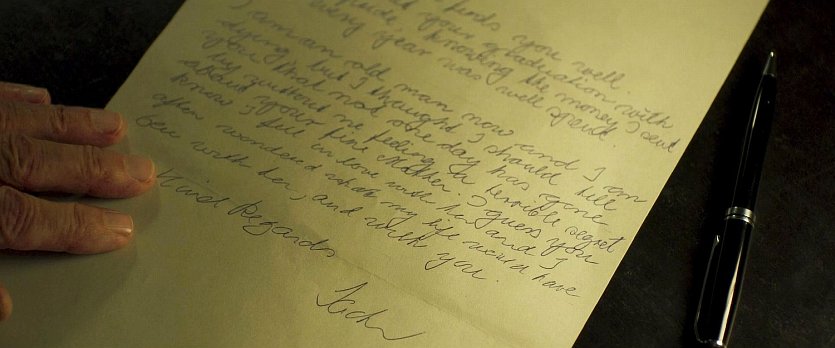 finds you well.
your graduation with
pride, knowing the money I sent
every year was well spent.
I am an old man now and I am
dying but I thought I should tell
you that not one day has gone
by without me feeling a terrible regret
about your fine Mother. I guess you
know I fell in love with her and I
often wondered what my life would have
been with her, and with you.
Kind Regards